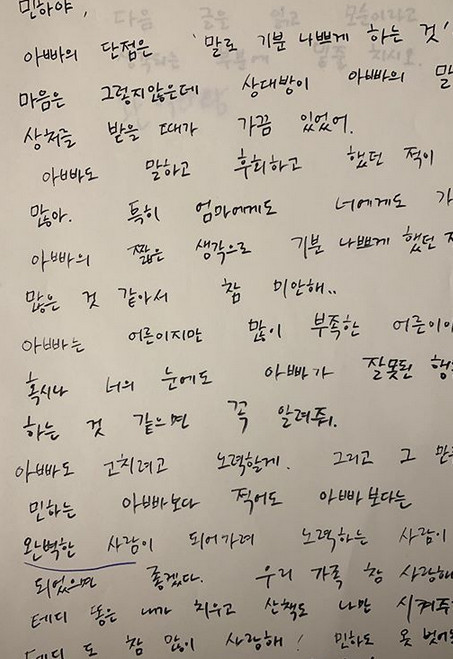 민하야,
아빠의 단점은 '말로 기분 나쁘게 하는 것'
마음은 그렇지않은데 상대방이 아빠의 말
상처를 받을 때가 가끔 있었어.
아빠도 말하고 후회하고 했던 적이
많아. 특히 엄마에게도 너에게도 가
아빠의 짧은 생각으로 기분 나쁘게 했던
많은 것 같아서 참 미안해..
아빠는 어른이지만 많이 부족한 어른이
혹시나 너의 눈에도 아빠가 잘못된 행
하는 것 같으면 꼭 알려줘.
아빠도 고치려고 노력할게. 그리고 그
민하는 아빠보다 적어도 아빠보다는
완벽한 사람이 되어가려 노력하는 사람이
되었으면 좋겠다. 우리 가족 참 사랑해
테디 똥은 내가 치우고 산책도 나만 시켜주
테디도 참 많이 사랑해! 민하도 옷 벗어